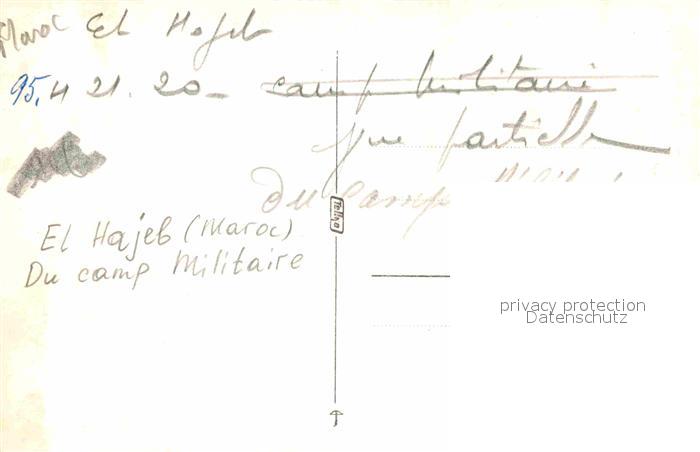 Maroc El Hajeb
95. H 21. 20 - camp militaire
Vue partielle
Du Camp
Tellko
El Hajeb (Maroc)
Du camp Militaire
privacy protection
Datenschutz